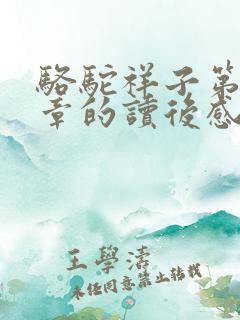 駱駝祥子第
章的讀後感
王學濤
未经同意禁止转载